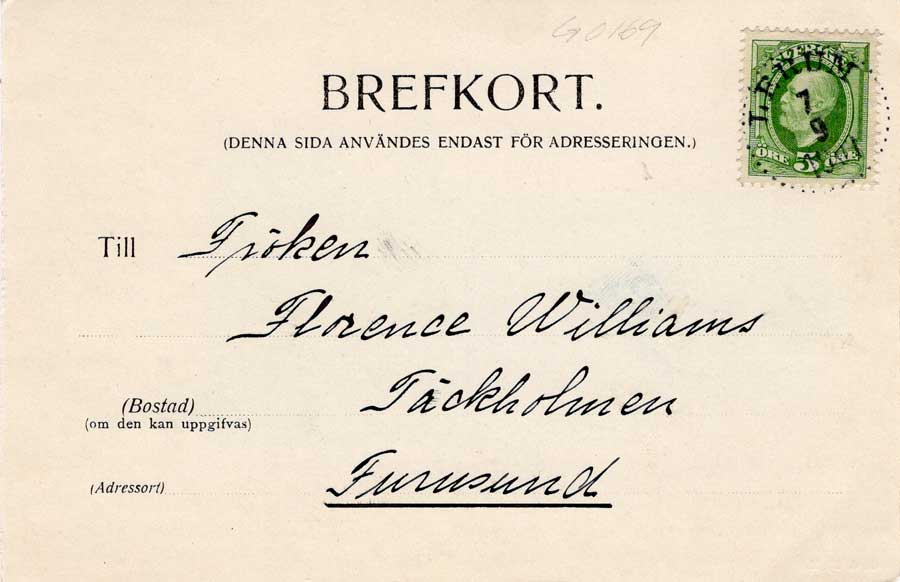 G0169
SVERIGE
LERUM
7
9
ÖRE 5 ÖRE
BREFKORT.
(DENNA SIDA ANVÄNDES ENDAST FÖR ADRESSERINGEN.)
Till Fröken
Florence Williams
Täckholmen
(Bostad)
(om den kan uppgifvas)
Furusund
(Adressort)